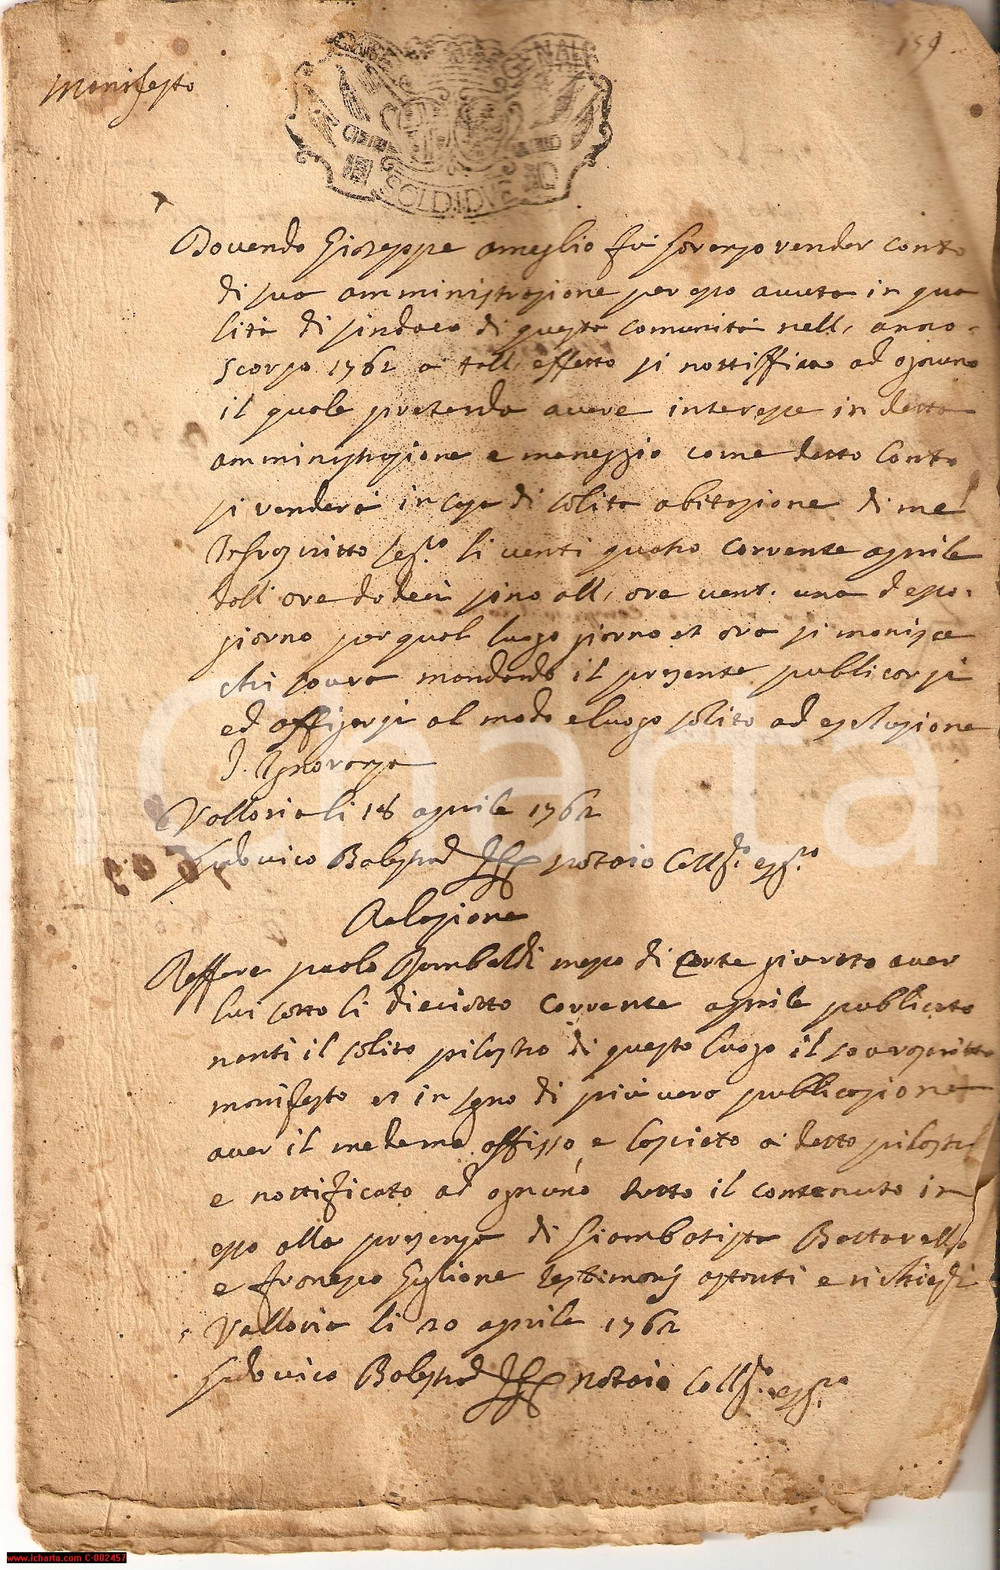 159
Manifesto
SOLDI DUE
Dovendo Giuseppe Ameglio fù Lorenzo render conto
di sua amministrazione per esso avuta in qua
lità di sindaco di questa comunità nell, anno
scorso 1762 a tall, effetto si nottiffica ad ognuno
il quale pretenda avere interesse in detta
amministrazione e maneggio come detto Conto
si renderà in casa di solita abitazione di me
Infrascritto seg.ro li venti quatro corrente aprile
dall ore dodeci sino all, ore vent. una d'esso
giorno per qual luogo giorno et ora si
chi sovra mandando il presente publicarsi
ed affigersi al modo e luogo solito ad esclusione
d. Ignoranza
Valloria li 18 aprile 1762
Ludovico not'aio Coll.o
Relazione
Reffere paolo Rambaldi messo di Corte giurato aver
lui sotto li dieciotto corrente aprile publicato
nanti il solito pilastro di questo luogo il sovrascritto
manifesto et in segno di più vera publicazione
aver il medemo affisso, e lasciato a detto pilastro
e nottificato ad ognuno tutto il contenuto in
esso alla presenza di Giambatista
e Francesco testimonij astanti e richiesti
Valloria li 20 aprile 1762
Ludovico notaio Coll.o
iCharta
www.icharta.com C-002457